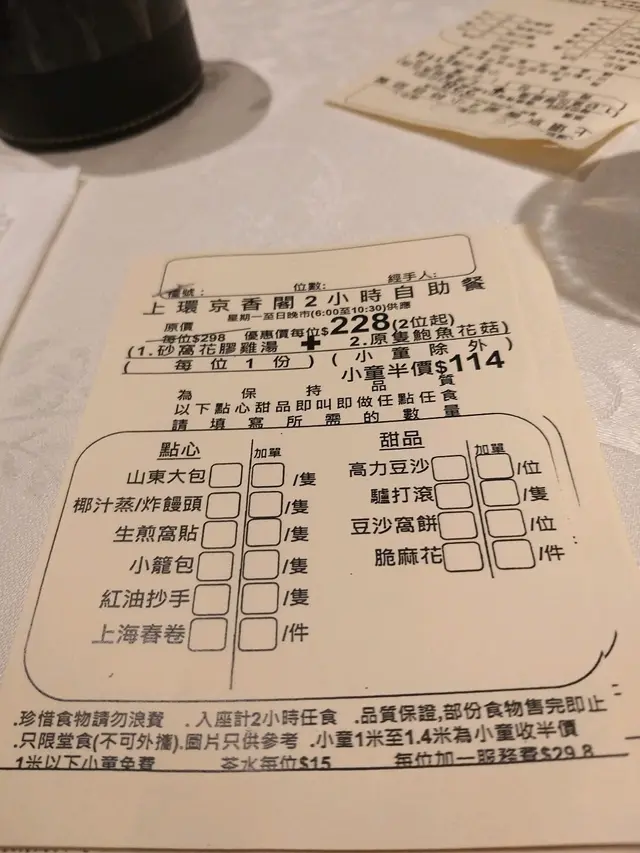 檯號： 位數： 經手人：
上環京香閣2小時自助餐
星期一至日晚市(6:00至10:30)供應
原價
每位$298 優惠價每位$228(2位起)
(1.砂窩花膠雞湯 + 2.原隻鮑魚花菇)
(每位1份) (小童除外)
小童半價$114
為保持品質
以下點心甜品即叫即做任點任食
請填寫所需的數量
點心 加單
山東大包 /隻
椰汁蒸/炸饅頭 /隻
生煎窩貼 /隻
小籠包 /隻
紅油抄手 /隻
上海春卷 /件
甜品 加單
高力豆沙 /位
驢打滾 /隻
豆沙窩餅 /位
脆麻花 /件
.珍惜食物請勿浪費 .入座計2小時任食 .品質保證,部份食物售完即止
.只限堂食(不可外攜).圖片只供參考 .小童1米至1.4米為小童收半價
1米以下小童免費 茶水每位$15 每位加一服務費$29.8